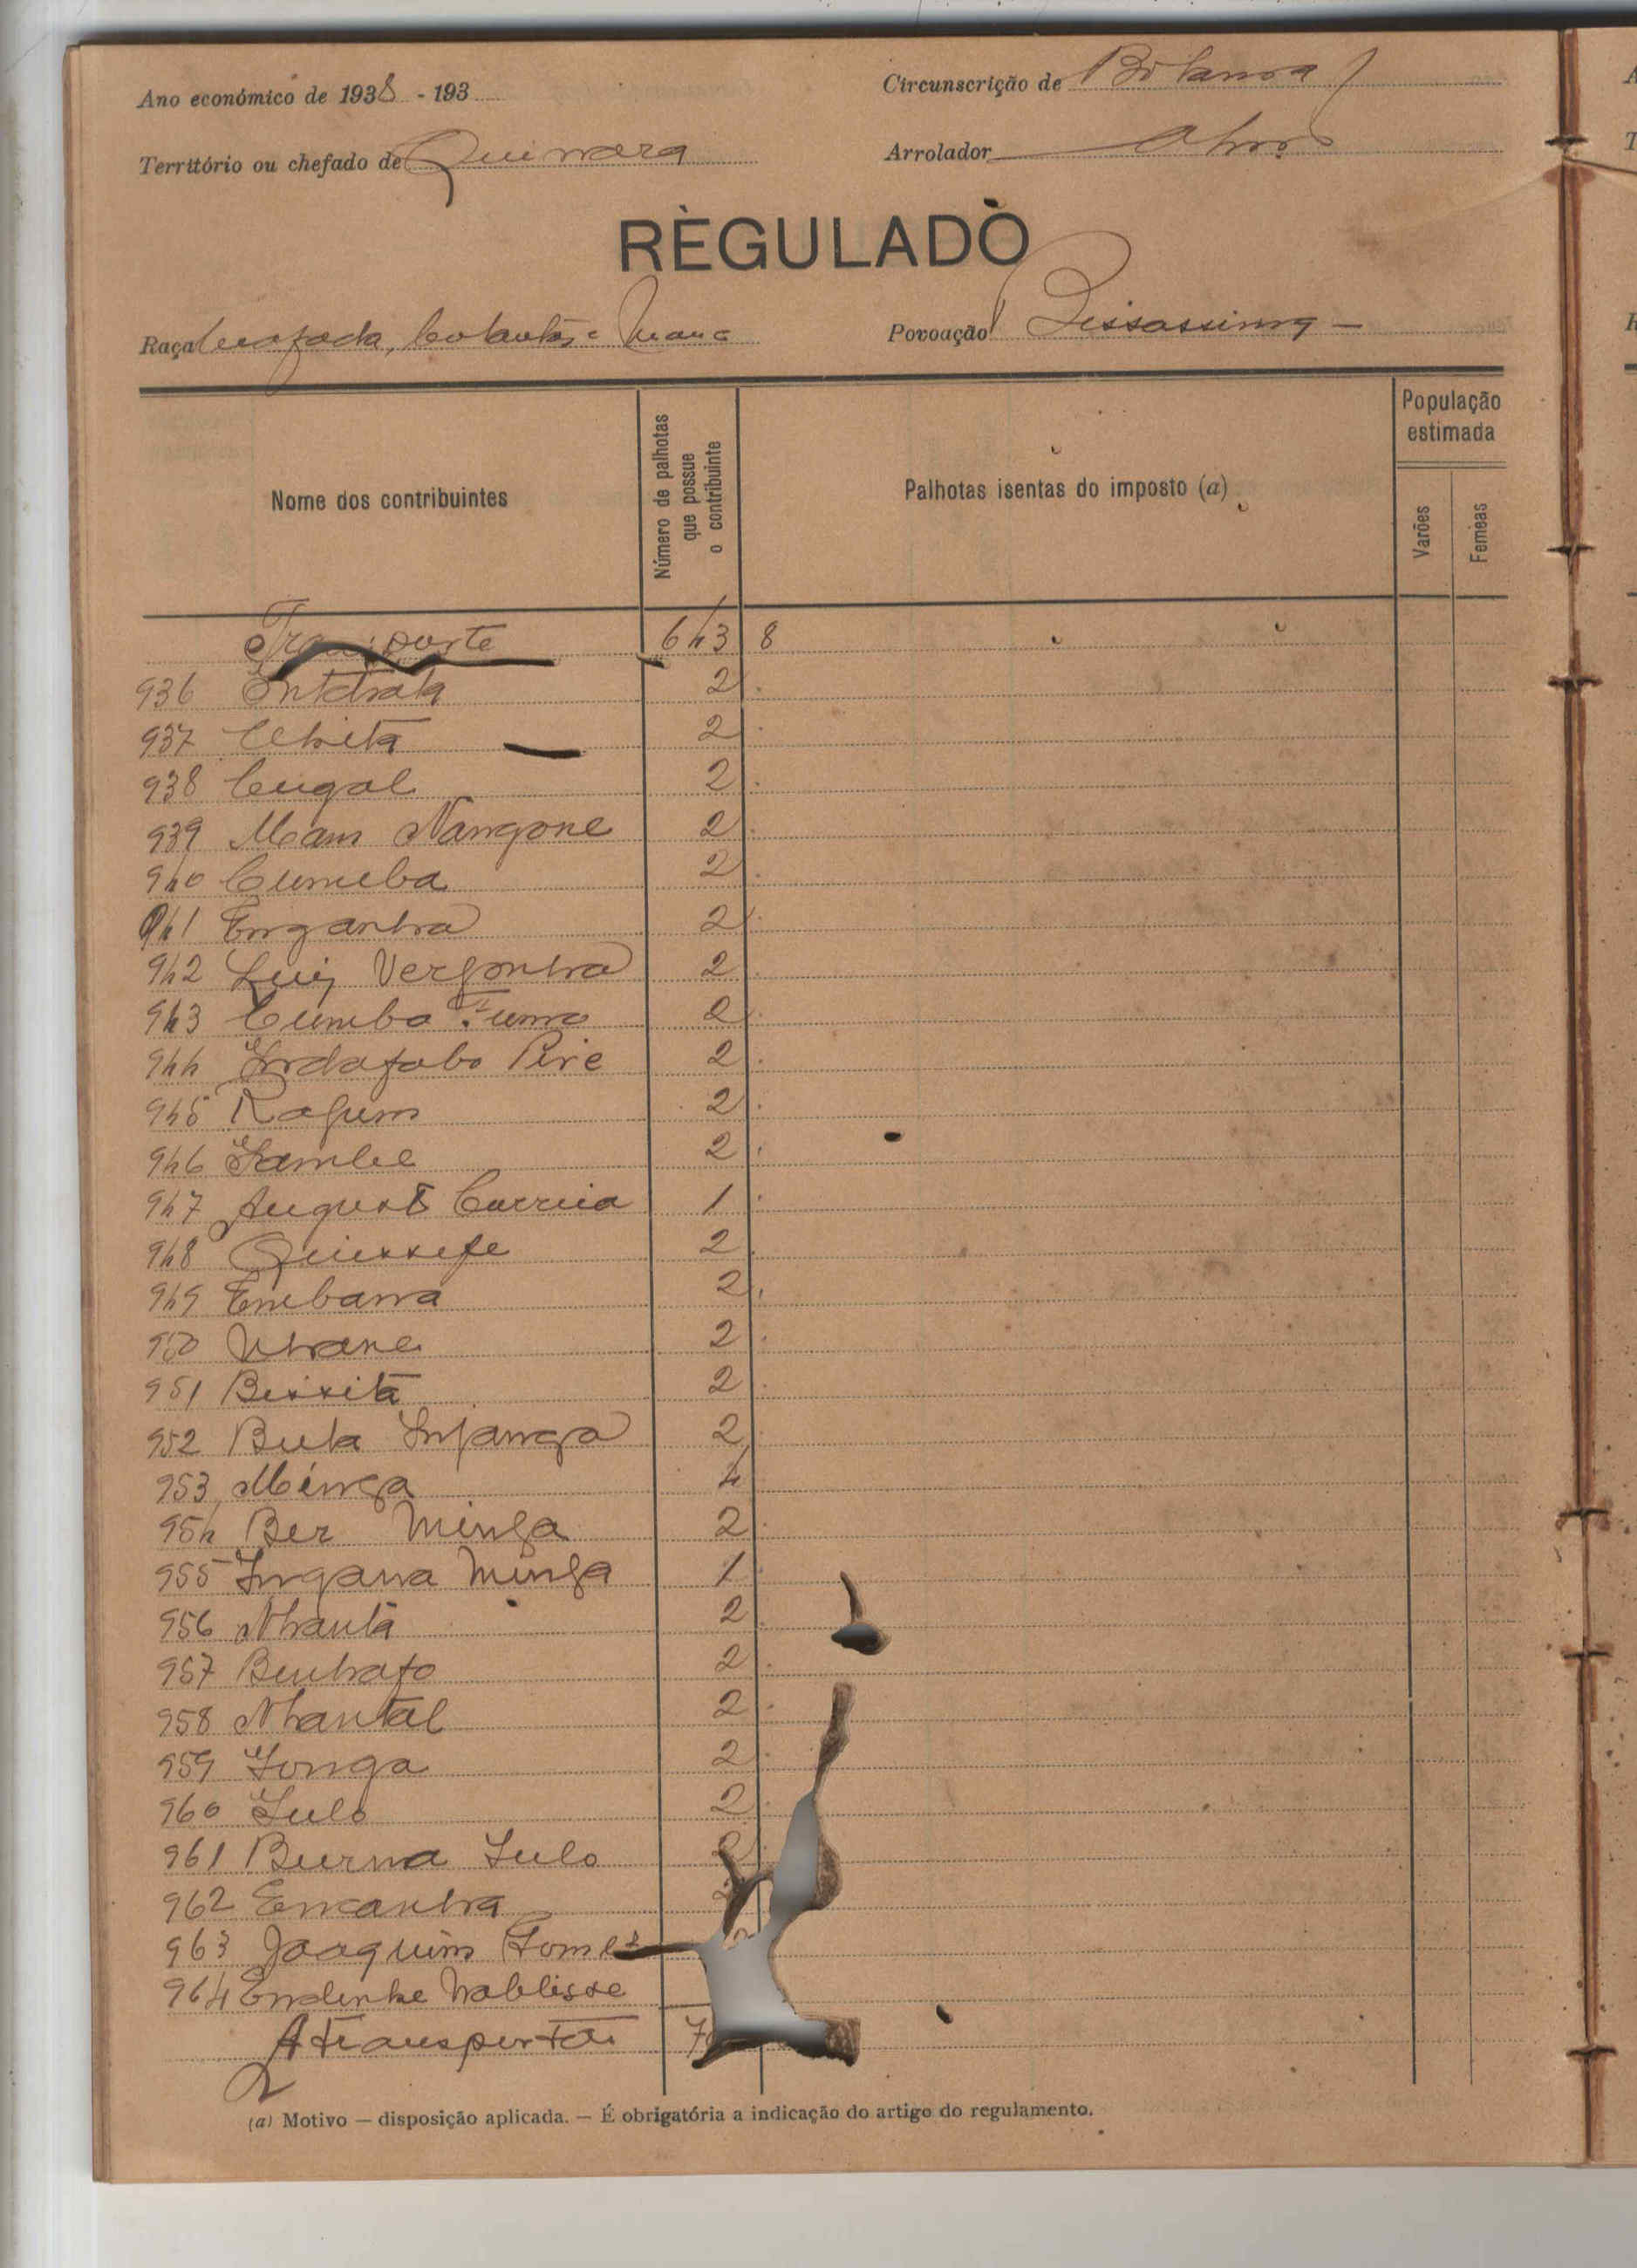 Ano económico de 1938 - 193
Circunscrição de Bolama
Território ou chefado de Quinara
Arrolador
REGULADO
Raça
Povoação Gissassima
Nome dos contribuintes
Número de palhotas que possue o contribuinte
Palhotas isentas do imposto (a)
População estimada
Varões
Femeas
Transporte 643 8
936 Intchala 2
937 2
938 Cugal 2
939 Mam Nangone 2
940 Cumeba 2
941 Enganha 2
942 Luiz Vergonha 2
943 Cumba Funco 2
944 Indafabo Pire 2
945 Rafum 2
946 Sambe 2
947 Augusto Correia 1
948 Quissefe 2
949 Embana 2
950 Nhane 2
951 Bissitã 2
952 Buta Infanga 2
953 Minga 4
954 Ber Minga 2
955 Ingana Minga 1
956 Nhantã 2
957 Binhafo 2
958 Nhantal 2
959 Songa 2
960 Sulo 2
961 Burna Sulo 2
962 Encanha 2
963 Joaquim Gomes
964 Endenhe Nablisse
A transportar 7
(a) Motivo — disposição aplicada. — É obrigatória a indicação do artigo do regulamento.